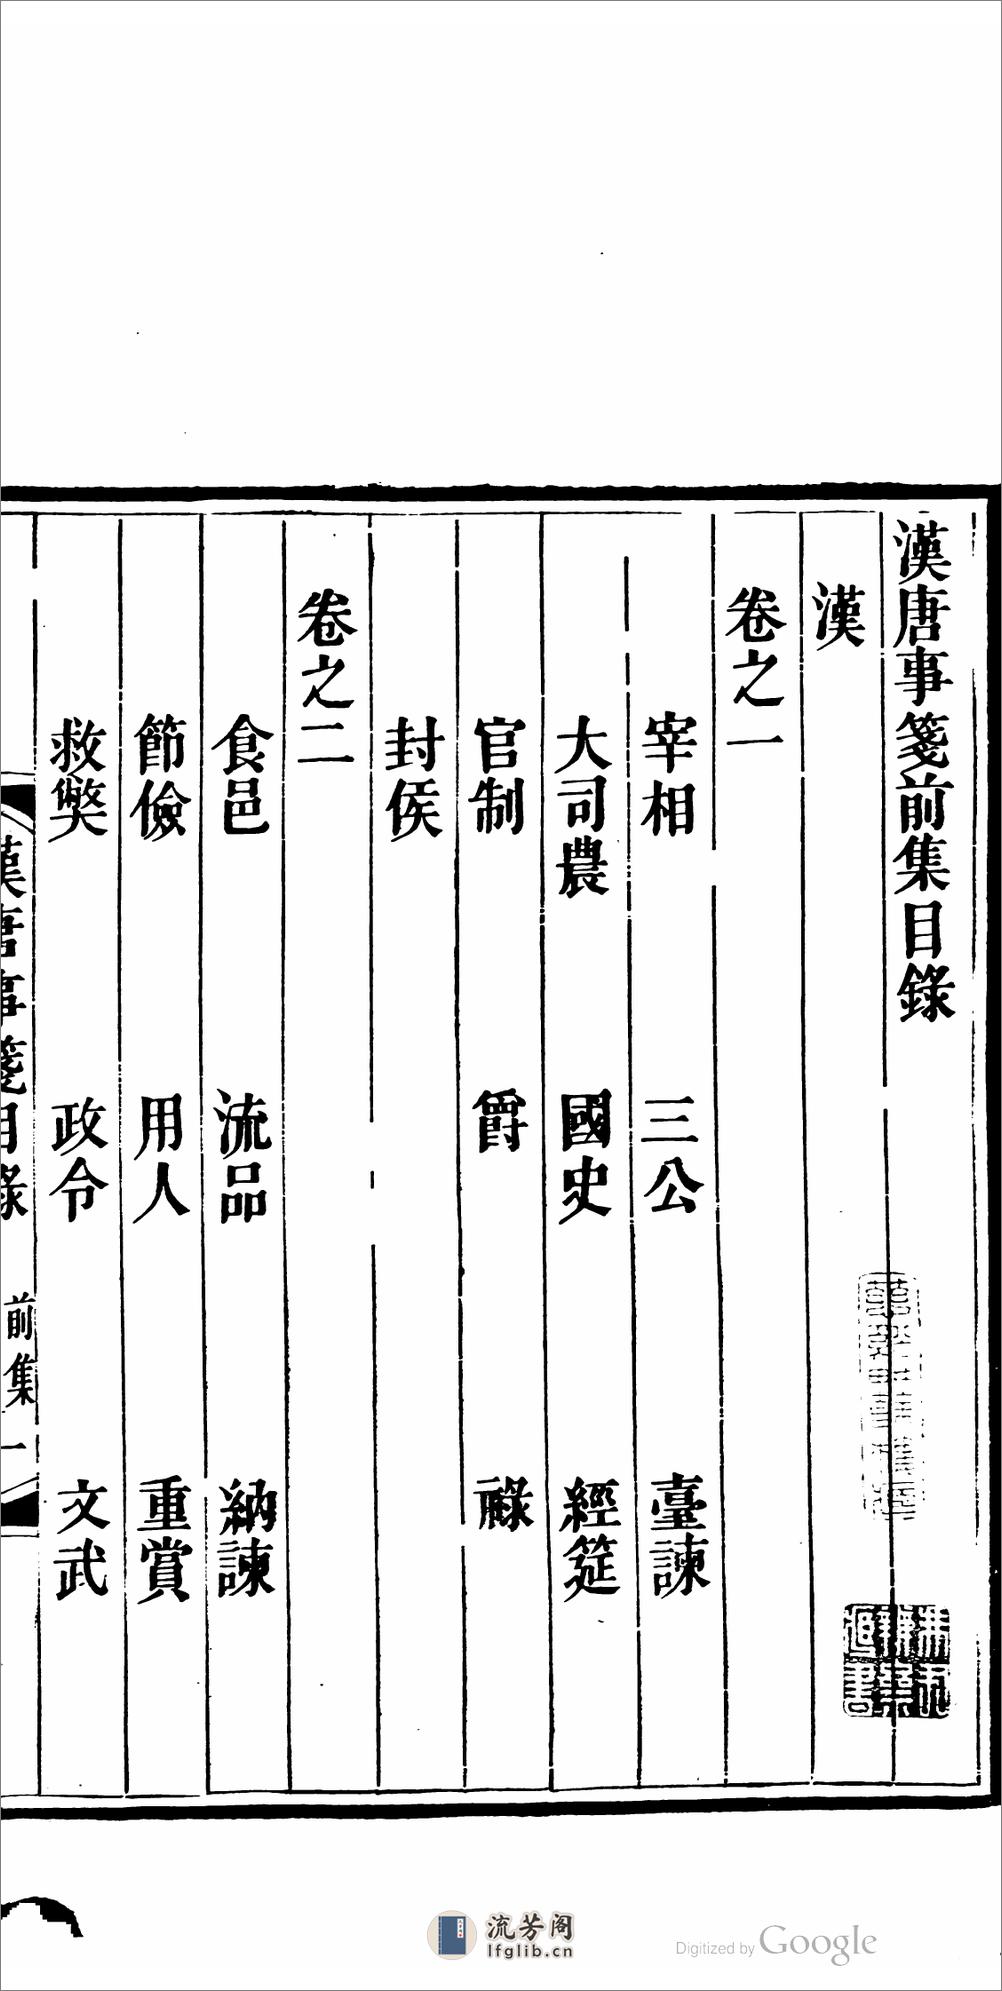 漢唐事箋前集目錄
漢
卷之一
宰相　三公　臺諫
大司農　國史　經筵
官制　爵　祿
封侯
卷之二
食邑　流品　納諫
節儉　用人　重賞
救獘　政令　文武
漢唐事箋目錄　前集　一
流芳阁
lfglib.cn
Digitized by Google